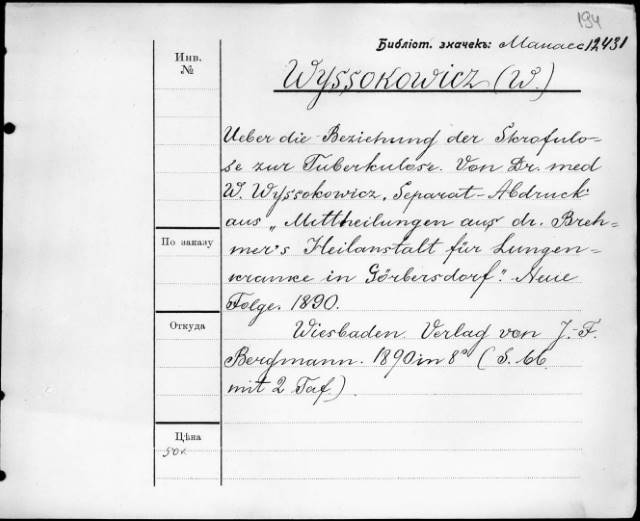 194
Библіот. значекъ: Манасс 12431
Инв.
№
Wyssokowicz (W.)
Ueber die Beziehung der Skrofulo-
se zur Tuberkulose. Von Dr. med
W. Wyssokowicz. Separat-Abdruck
aus „Mittheilungen aus dr. Breh-
По заказу
mer's Heilanstalt für Lungen-
kranke in Görbersdorf." Neue
Folge. 1890.
Откуда
Wiesbaden. Verlag von J. F.
Bergmann. 1890 in 8° (S. 66
mit 2 Taf.)
Цѣна
50к.